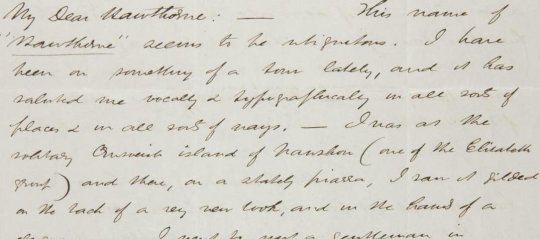 My Dear Hawthorne: — This name of
"Hawthorne" seems to be ubiquitous. I have
been on something of a tour lately, and it has
saluted me vocally & typographically in all sorts of
places & in all sorts of ways. — I was at the
solitary Crusoeish island of Naushon (one of the Elisabeth
group) and there, on a stately piazza, I saw it gilded
on the back of a very new book, and in the hands of a